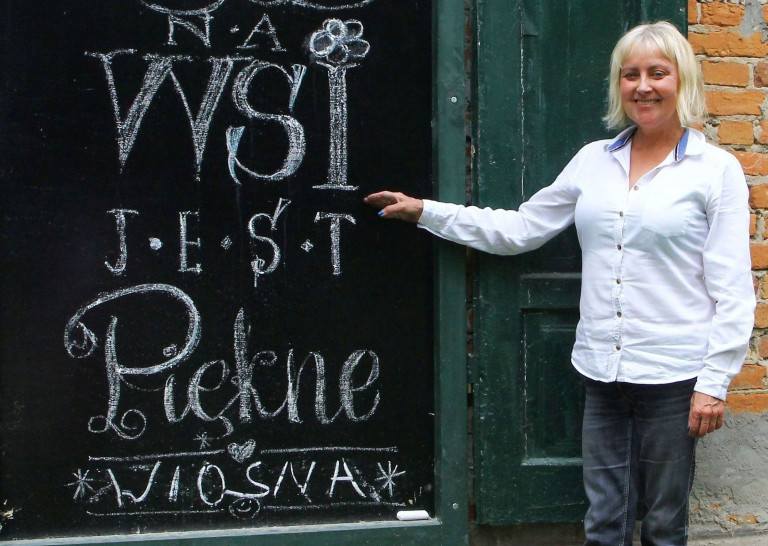 NA
WSI
JEŚT
Piękne
WIOSNA